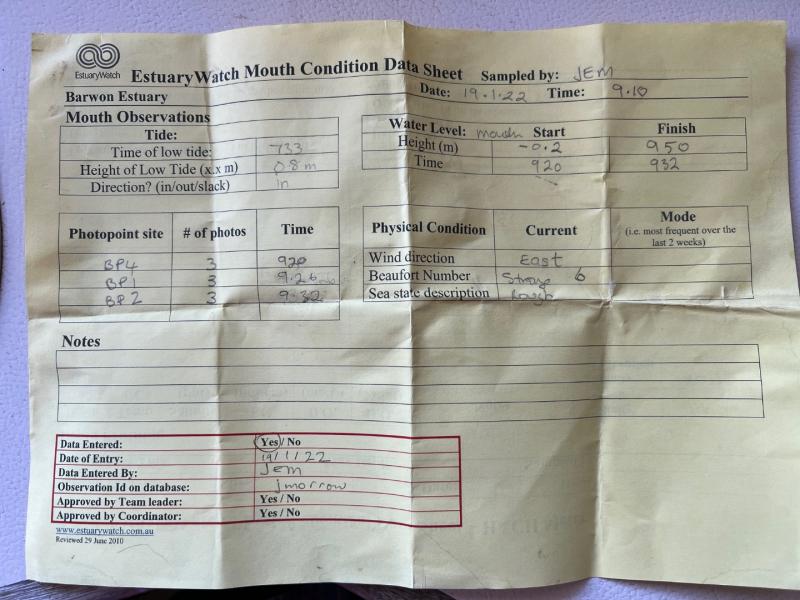 EstuaryWatch
EstuaryWatch Mouth Condition Data Sheet Sampled by: JEM
Barwon Estuary Date: 19.1.22 Time: 9.10
Mouth Observations
Tide:
Time of low tide: 733
Height of Low Tide (x.x m) 0.8m
Direction? (in/out/slack) in
Water Level: mouth Start Finish
Height (m) -0.2 950
Time 920 932
Photopoint site # of photos Time
BP4 3 920
BP1 3 9.26
BP2 3 9.32
Physical Condition Current Mode
(i.e. most frequent over the
last 2 weeks)
Wind direction East
Beaufort Number Strong 6
Sea state description Rough
Notes
Data Entered: Yes / No
Date of Entry: 19/1/22
Data Entered By: Jem
Observation Id on database: jmorrow
Approved by Team leader: Yes / No
Approved by Coordinator: Yes / No
www.estuarywatch.com.au
Reviewed 29 June 2010